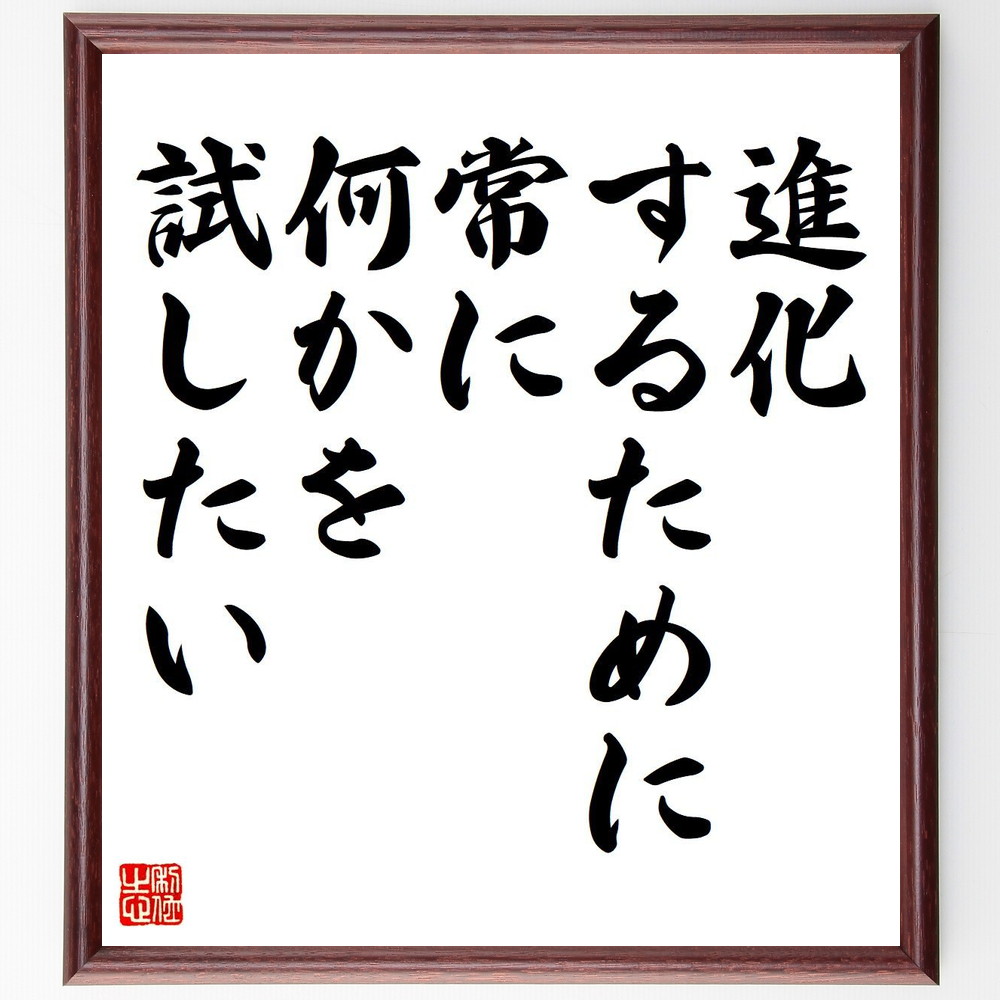 進化
するために
常に
何かを
試したい